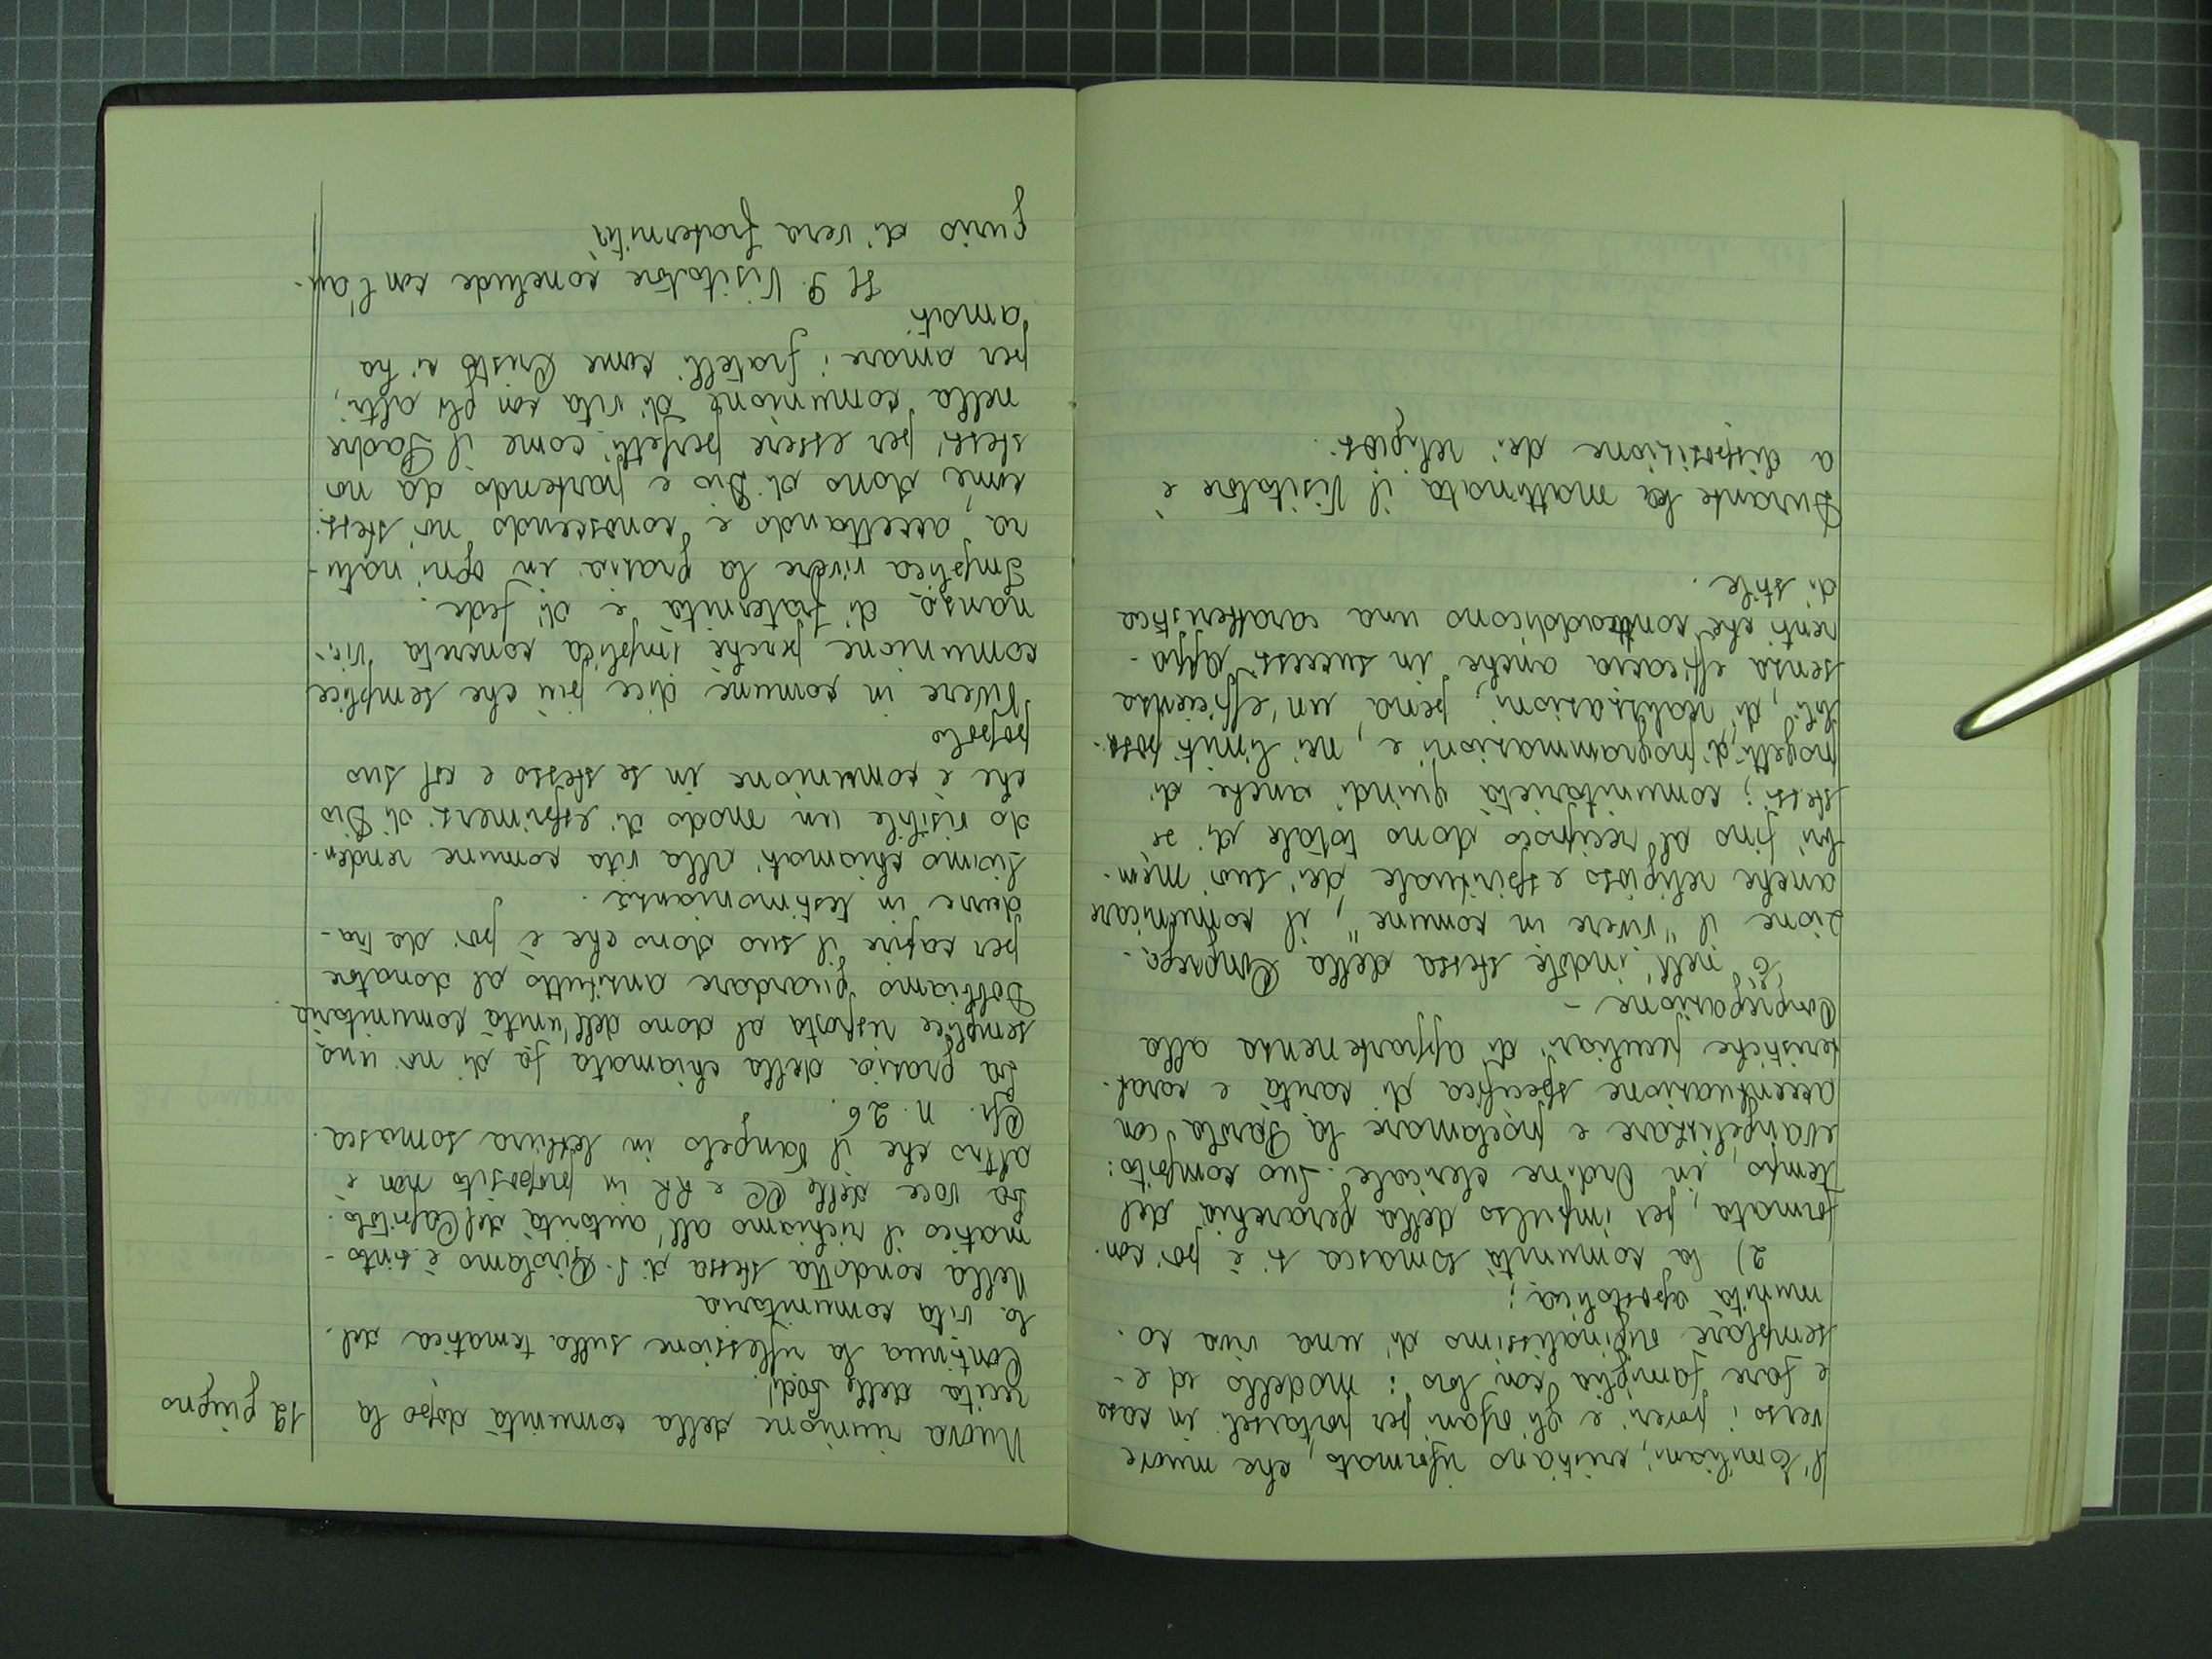 l'Emiliani, cristiano riformato, che muove
verso i poveri e gli orfani per portarseli in casa
e fare famiglia con loro: modello ed e-
semplare originalissimo di una viva co-
munità apostolica;
2) la comunità somasca si è poi con-
formata, per impulso della gerarchia del
tempo, in Ordine clericale. Suo compito:
evangelizzare e proclamare la Parola con
accentuazione specifica di carità e carat-
teristiche peculiari di appartenenza alla
Congregazione -
È nell'indole stessa della Congrega-
zione il "vivere in comune", il comunicare
anche religioso e spirituale dei suoi mem-
bri fino al reciproco dono totale di se
stessi; comunitarietà quindi anche di
progetti, di programmazioni e, nei limiti possi-
bili, di realizzazioni, pena un'efficienza
senza efficacia anche in successi appa-
renti che contraddicono una caratteristica
di stile.
Durante la mattinata il Visitatore è
a disposizione dei religiosi.
12 giugno
Nuova riunione della comunità dopo la
recita delle Lodi.
Continua la riflessione sulla tematica del-
la vita comunitaria
Nella condotta stessa di S. Girolamo è sinto-
matico il richiamo all'autorità del Capitolo.
La voce delle CC e RR in proposito non è
altro che il Vangelo in lettura somasca.
Cfr. n. 26.
La grazia della chiamata fa di noi una
semplice risposta al dono dell'unità comunitaria
Dobbiamo guardare anzitutto al donatore
per capire il suo dono che è poi da tra-
durre in testimonianza.
Siamo chiamati alla vita comune renden-
do visibile un modo di esprimersi di Dio
che è comunione in se stesso e col suo
popolo
Vivere in comune dice più che semplice
comunione perché implica concreta vici-
nanza di fraternità e di fede.
Implica vivere la grazia in ogni natu-
ra, accettando e conoscendo noi stessi
come dono di Dio e partendo da noi
stessi per essere perfetti come il Padre
nella comunione di vita con gli altri,
per amare i fratelli come Cristo ci ha
amati
Il P. Visitatore conclude con l'au-
gurio di vera fraternità